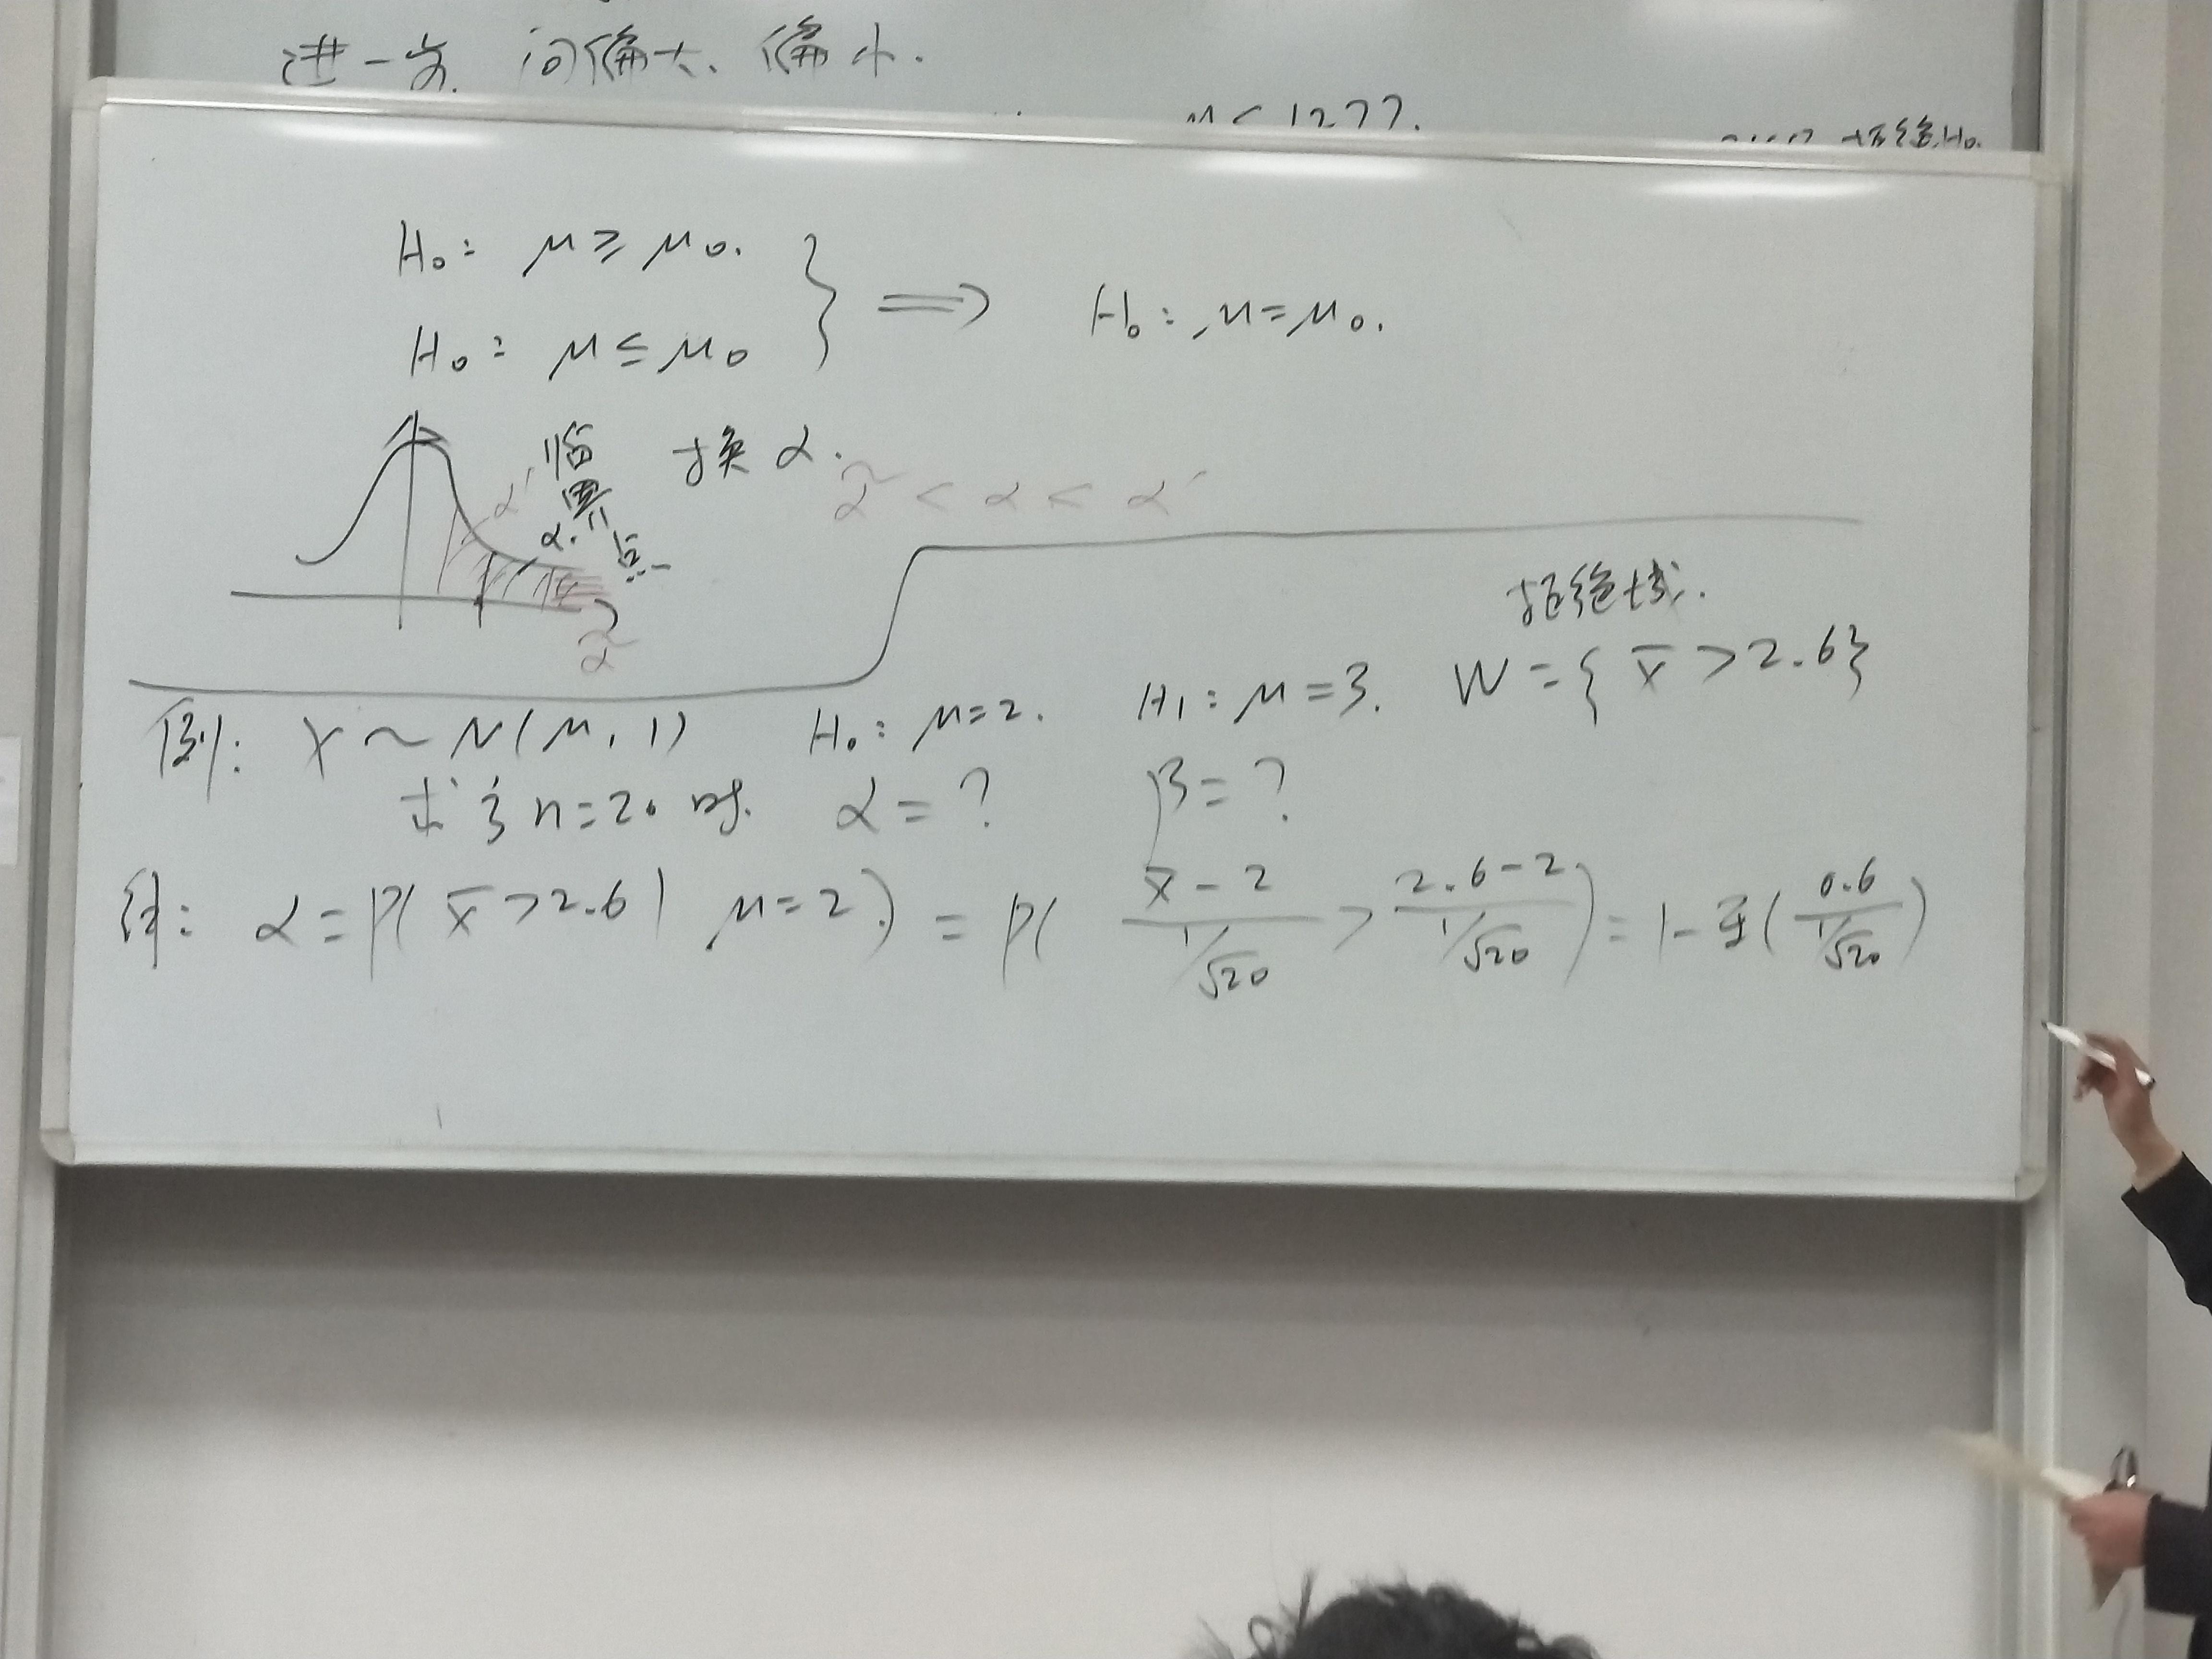 进一步 问偏大、偏小.
μ<1277.
拒绝H₀.
H₀: μ≥μ₀.
H₀: μ≤μ₀
} ⟹ H₀: μ=μ₀.
临界点
换α.
α̃ < α < α′
α′
α.
α̃
拒绝域.
例: X~N(μ,1) H₀: μ=2. H₁: μ=3. W={x̄>2.6}
求当n=20时. α=? β=?
解: α=P(x̄>2.6| μ=2.) = P( (x̄-2)/(1/√20) > (2.6-2)/(1/√20) ) = 1-Φ( 0.6/(1/√20) )